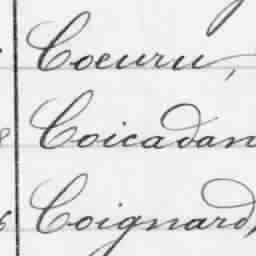 Coeuru,
Coicadan
Coignard,